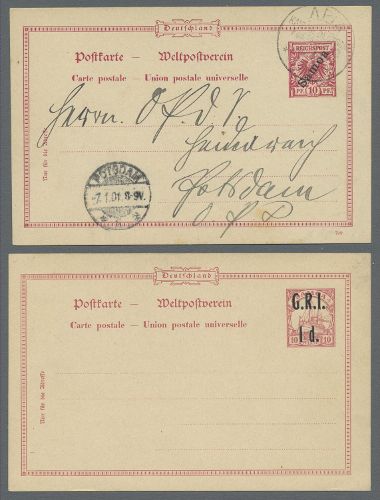 Deutschland
Postkarte — Weltpostverein
Carte postale — Union postale universelle
REICHSPOST
PF. 10 PF.
Samoa
Herrn
Potsdam
POTSDAM
-7.1.01. 8-9V.
Nur für die Adresse
Deutschland
Postkarte — Weltpostverein
Carte postale — Union postale universelle
G.R.I.
1 d.
10 10
Nur für die Adresse